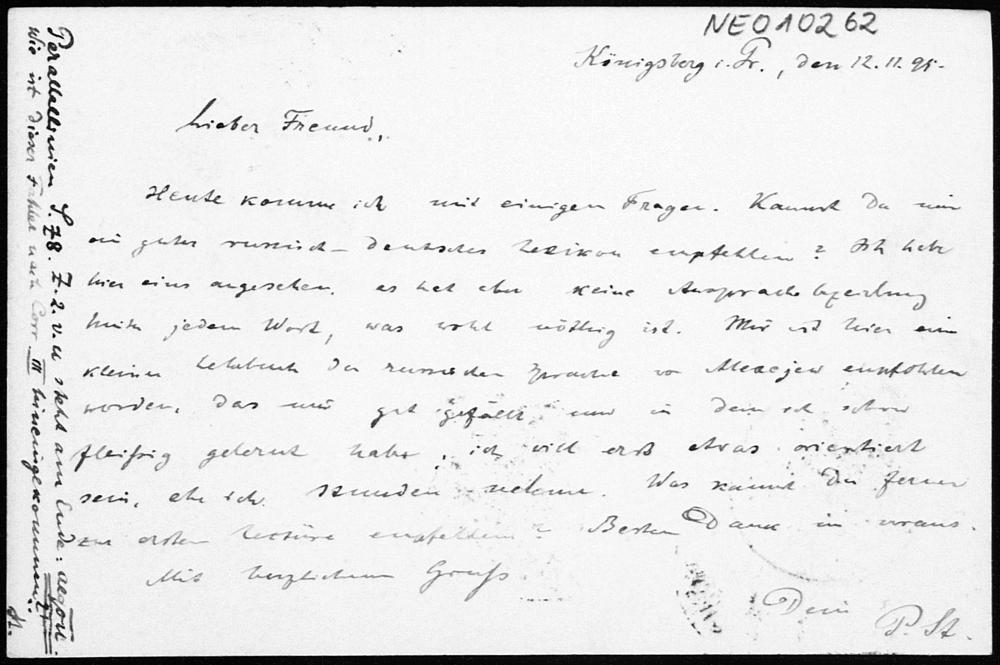 NE010262
Königsberg i. Pr., den 12.11.95.
Lieber Freund,
Heute komme ich mit einigen Fragen. Kannst Du mir
ein gutes russisch-deutsches Lexikon empfehlen? Ich habe
hier eins angesehen, es hat aber keine Aussprachebezeichnung
hinter jedem Wort, was wohl nöthig ist. Mir ist hier ein
kleines Lehrbuch der russischen Sprache von Alexejew empfohlen
worden, das mir gut gefällt und in dem ich schon
fleißig gelernt habe, ich will erst etwas orientiert
sein, ehe ich Stunden nehme. Was kannst Du ferner
zur ersten Lectüre empfehlen? Besten Dank im voraus.
Mit herzlichem Gruß
Dein P. St.
Parallellinien S. 78. Z. 2. v. u. steht am Ende:
Wie ist dieser Fehler nach Corr. III hineingekommen?
St.